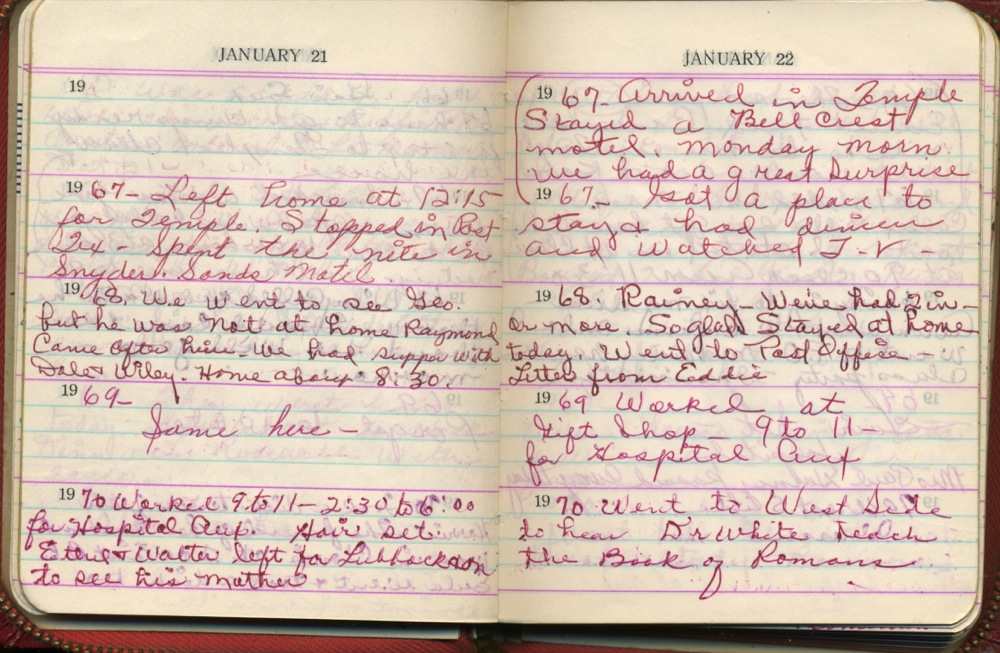 JANUARY 21
19
1967- Left home at 12:15
for Temple. Stopped in Post
Tex - Spent the nite in
Snyder. Sands Motel.
1968. We went to see Geo.
but he was not at home Raymond
Came after him - We had supper with
Dale & Wiley. Home about 8:30.
1969-
Same here -
1970 Worked 9 to 11 - 2:30 to 6:00
for Hospital Aux. Hair set.
Ethel & Walter left for Lubbock
to see his mother
JANUARY 22
1967- Arrived in Temple
Stayed a Bell Crest
motel. Monday morn.
we had a great Surprise
1967- Got a place to
stay & had dinner
and watched T.V -
1968. Rainey - Weive had 2 in -
or more. So glad. Stayed at home
today. Went to Post Office -
Letter from Eddie
1969 Worked at
Gift Shop - 9 to 11 -
for Hospital Aux
1970 Went to West Side
to hear Dr White teach
the Book of Romans